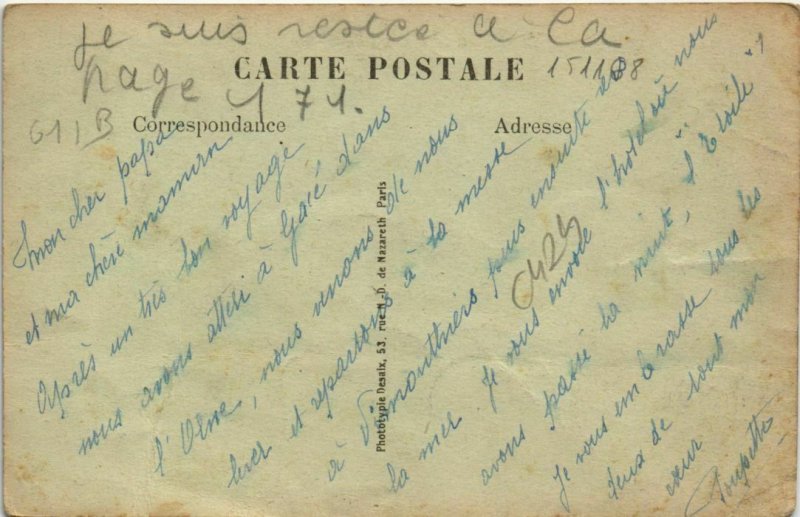 Je suis restée à la
page 171.
CARTE POSTALE
151188
611B
Correspondance
Adresse
Mon cher papa
et ma chère maman
Après un très bon voyage
nous avons atterri à Gacé dans
l'Orne, nous venons de nous
lever et repartons à la messe
à Vimoutiers puis ensuite
la mer. Je vous envoie l'hotel où nous
avons passé la nuit, "l'Etoile"!
Je vous embrasse tous les
deux de tout mon
cœur
Poupette
Phototypie Desaix, 53, rue N.-D. de Nazareth Paris